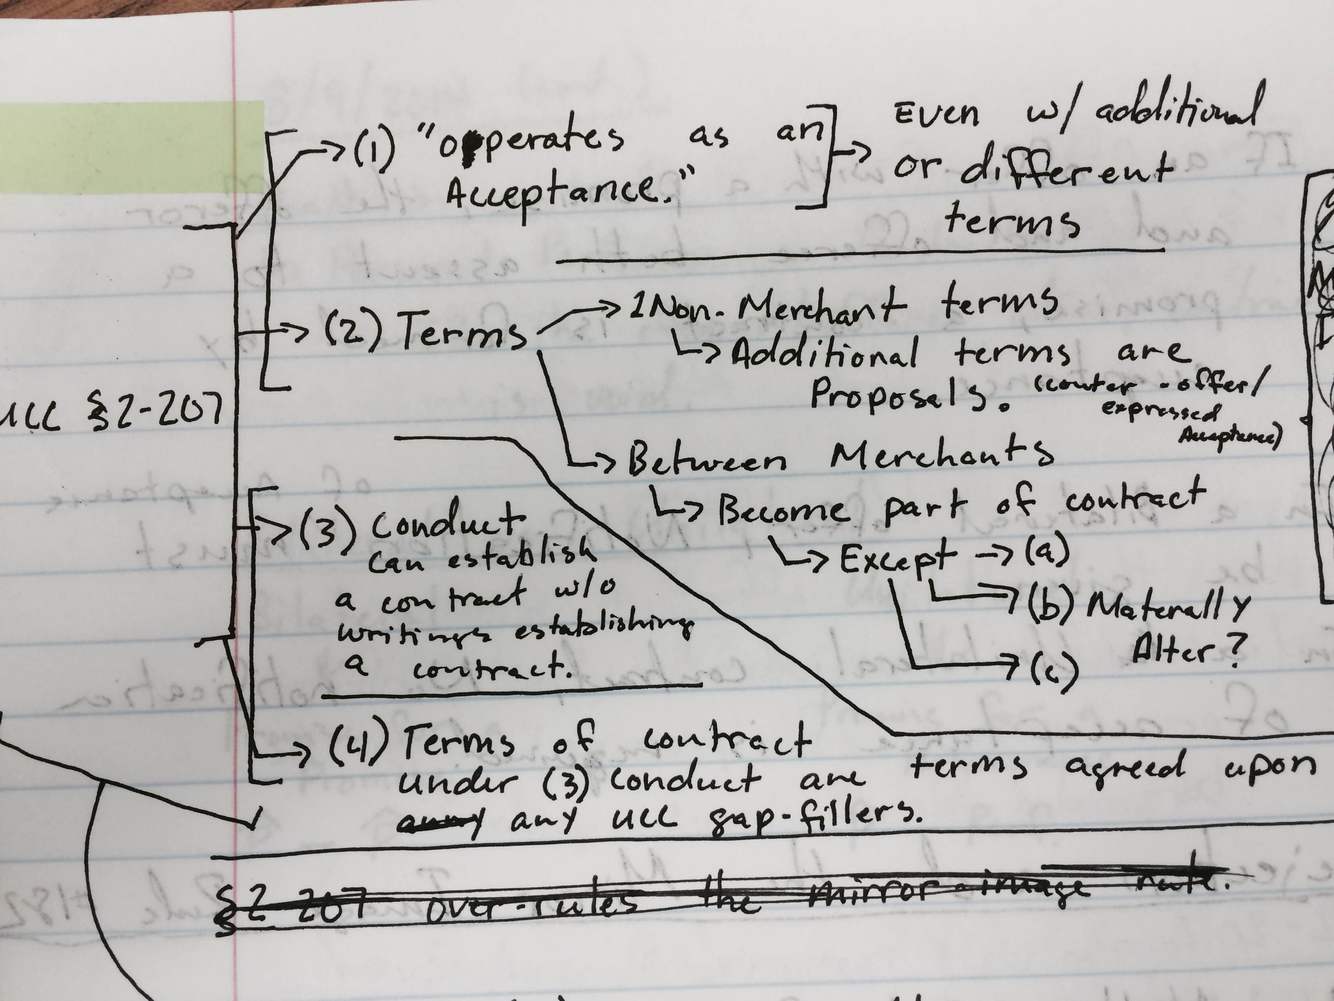 (1) "operates as an
Acceptance."
Even w/ additional
or different
terms
UCC §2-207
(2) Terms
Non-Merchant terms
Additional terms are
Proposals. (counter-offer/
expressed
Acceptance)
Between Merchants
Become part of contract
Except → (a)
(b) Materally
Alter?
(c)
(3) Conduct
can establish
a contract w/o
writings establishing
a contract.
(4) Terms of contract
under (3) conduct are terms agreed upon
any UCC gap-fillers.
§2-207 over-rules the mirror-image rule.